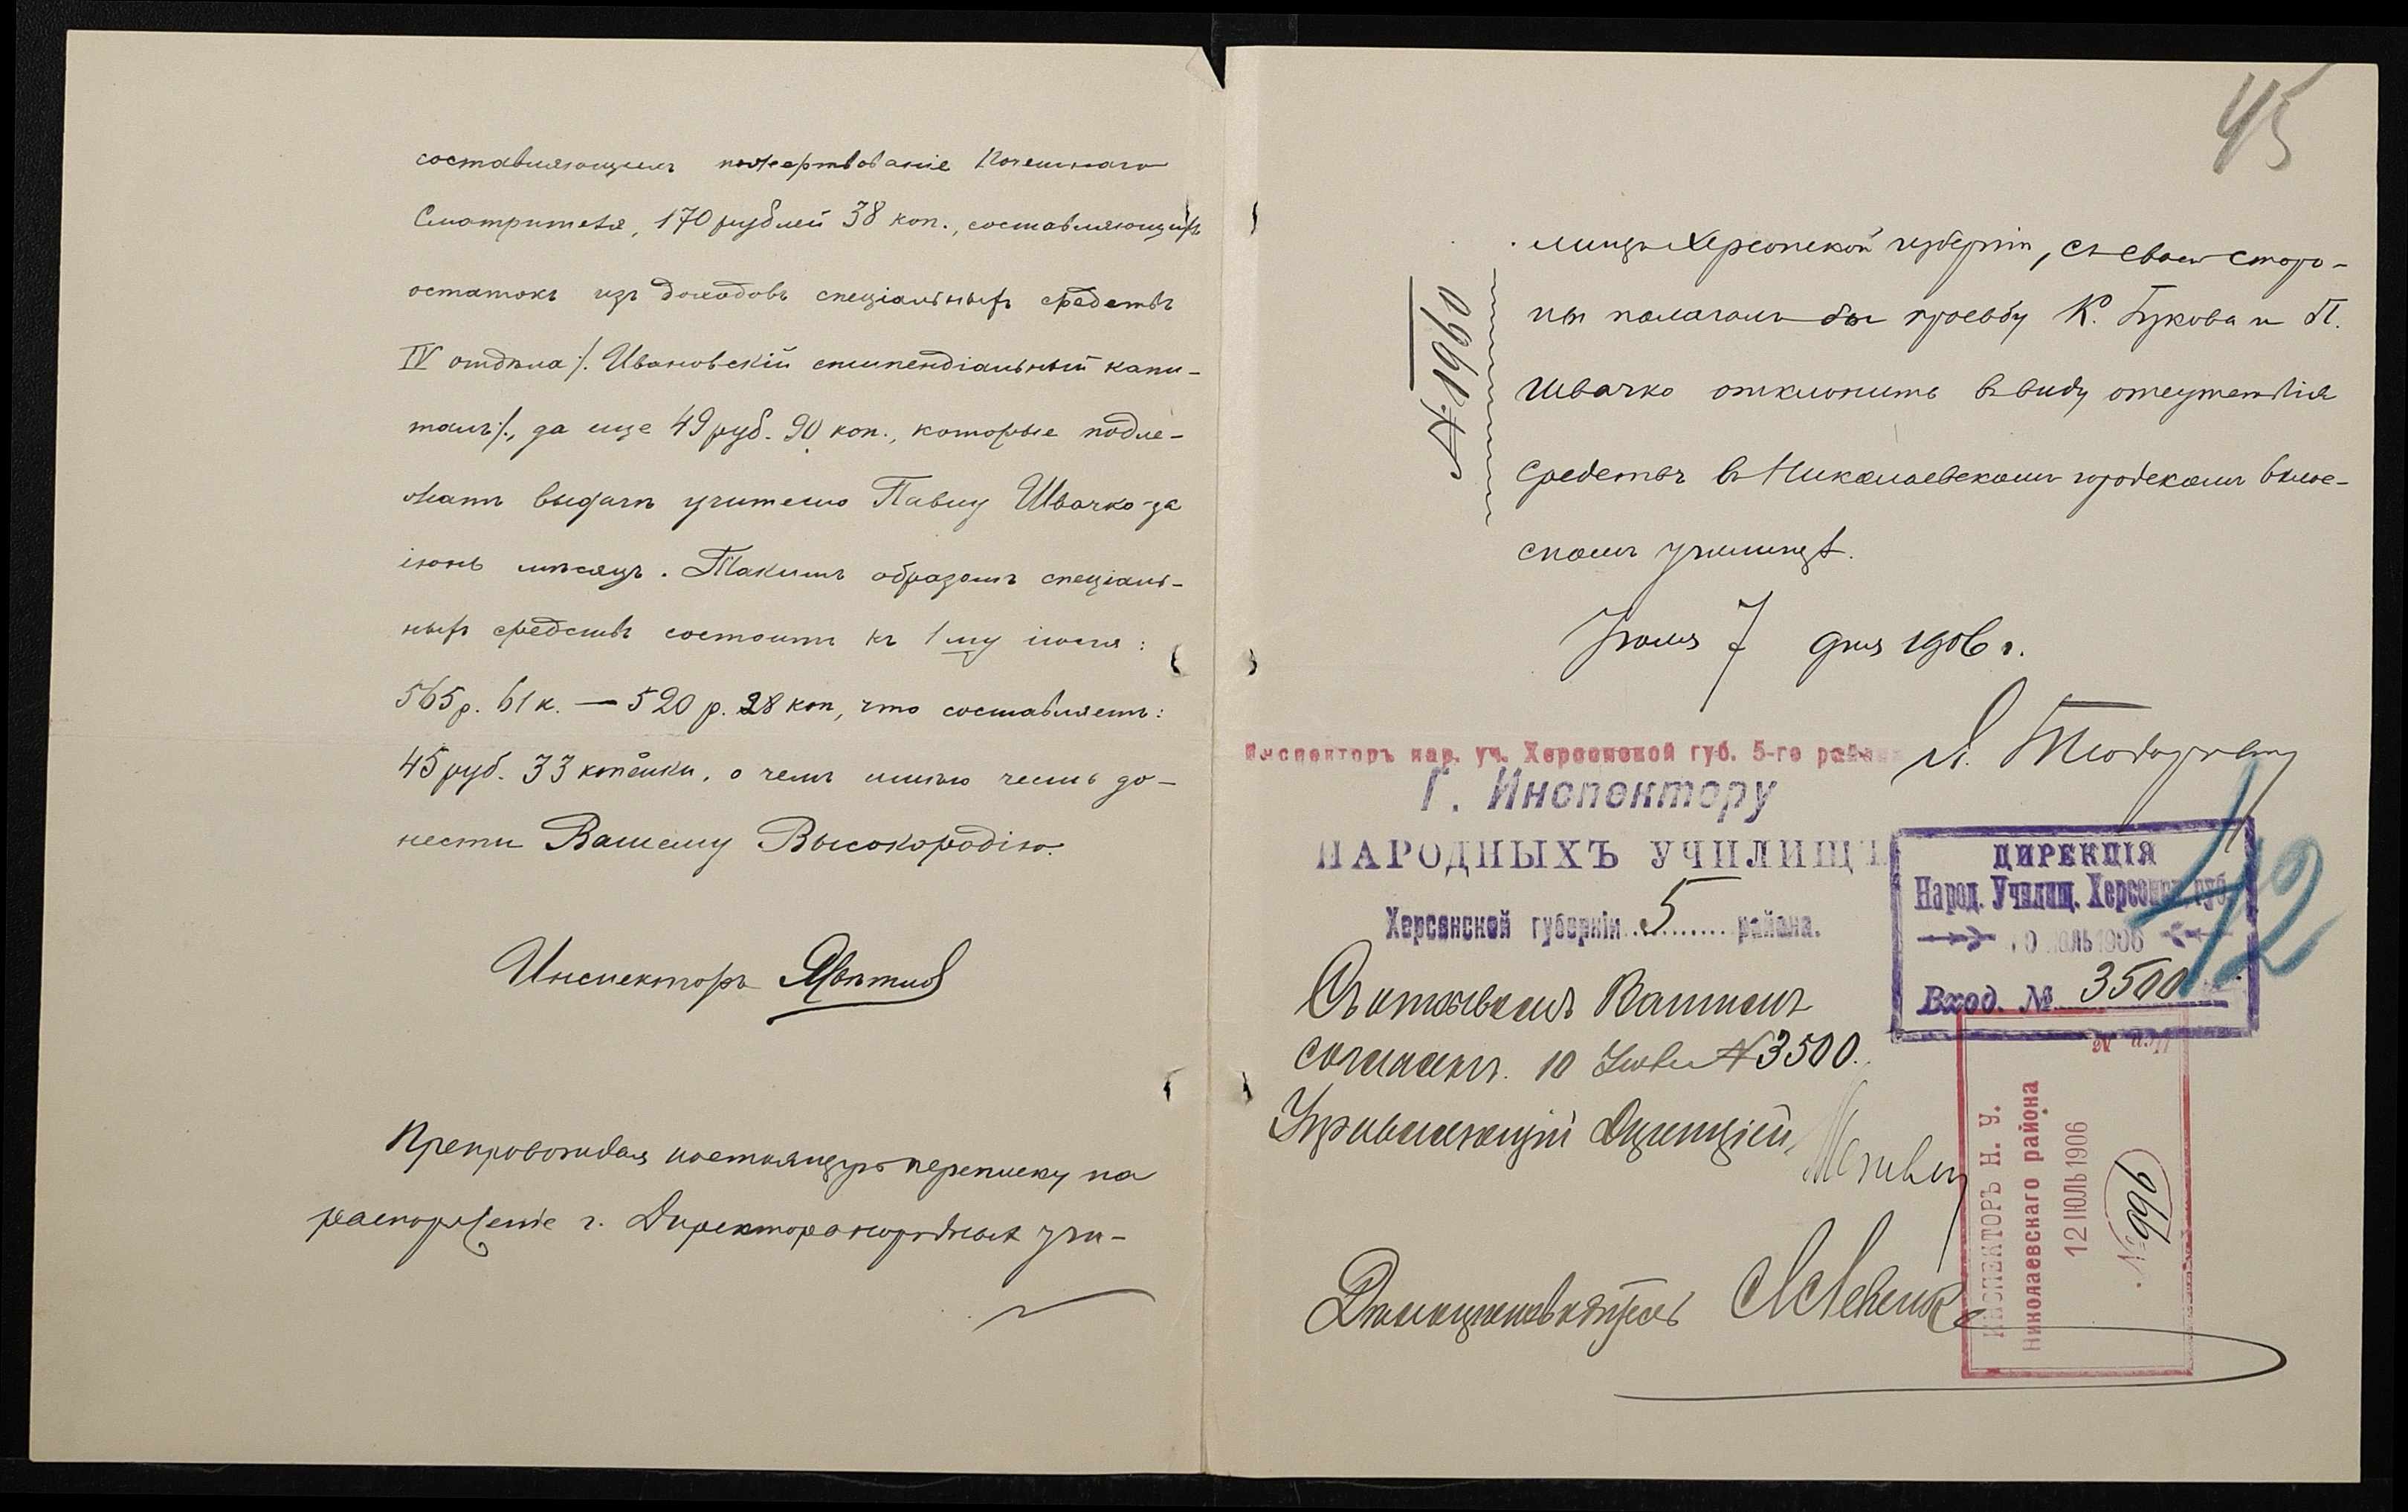 составляющихъ пожертвованіе Почетнаго
Смотрителя, 170 рублей 38 коп., составляющихъ
остатокъ изъ доходовъ спеціальныхъ средствъ
IV отдѣла /. Ивановскій стипендіальный капи-
талъ /., да еще 49 руб. 90 коп., которые подле-
жатъ выдачѣ учителю Павлу Швачко за
іюнь мѣсяцъ. Такимъ образомъ спеціаль-
ныхъ средствъ состоитъ къ 1му іюля:
565 р. 61 к. — 520 р. 28 коп, что составляетъ:
45 руб. 33 копѣйки, о чемъ имѣю честь до-
нести Вашему Высокородію.
Инспекторъ
Препровождая настоящую переписку на
распоряженіе г. Директора народныхъ учи-
45
лищъ Херсонской губерніи, съ своей сторо-
ны полагалъ бы просьбу К. Букова и П.
Швачко отклонить въ виду отсутствія
средствъ въ Николаевскомъ городскомъ
скомъ училищѣ.
Іюля 7 дня 1906 г.
№ 1960
Инспекторъ нар. уч. Херсонской губ. 5-го района
Г. Инспектору
НАРОДНЫХЪ УЧИЛИЩЪ
Херсонской губерніи 5 района.
ДИРЕКЦІЯ
Народ. Училищ. Херсонск. губ.
10 ІЮЛЬ 1906
Вход. № 3500
12
Съ отзывомъ Вашимъ
согласенъ. 10 Іюля № 3500.
Управляющій Дирекціей,
Дѣлопроизводитель
ИНСПЕКТОРЪ Н. У.
Николаевскаго района
12 ІЮЛЬ 1906
№ 966